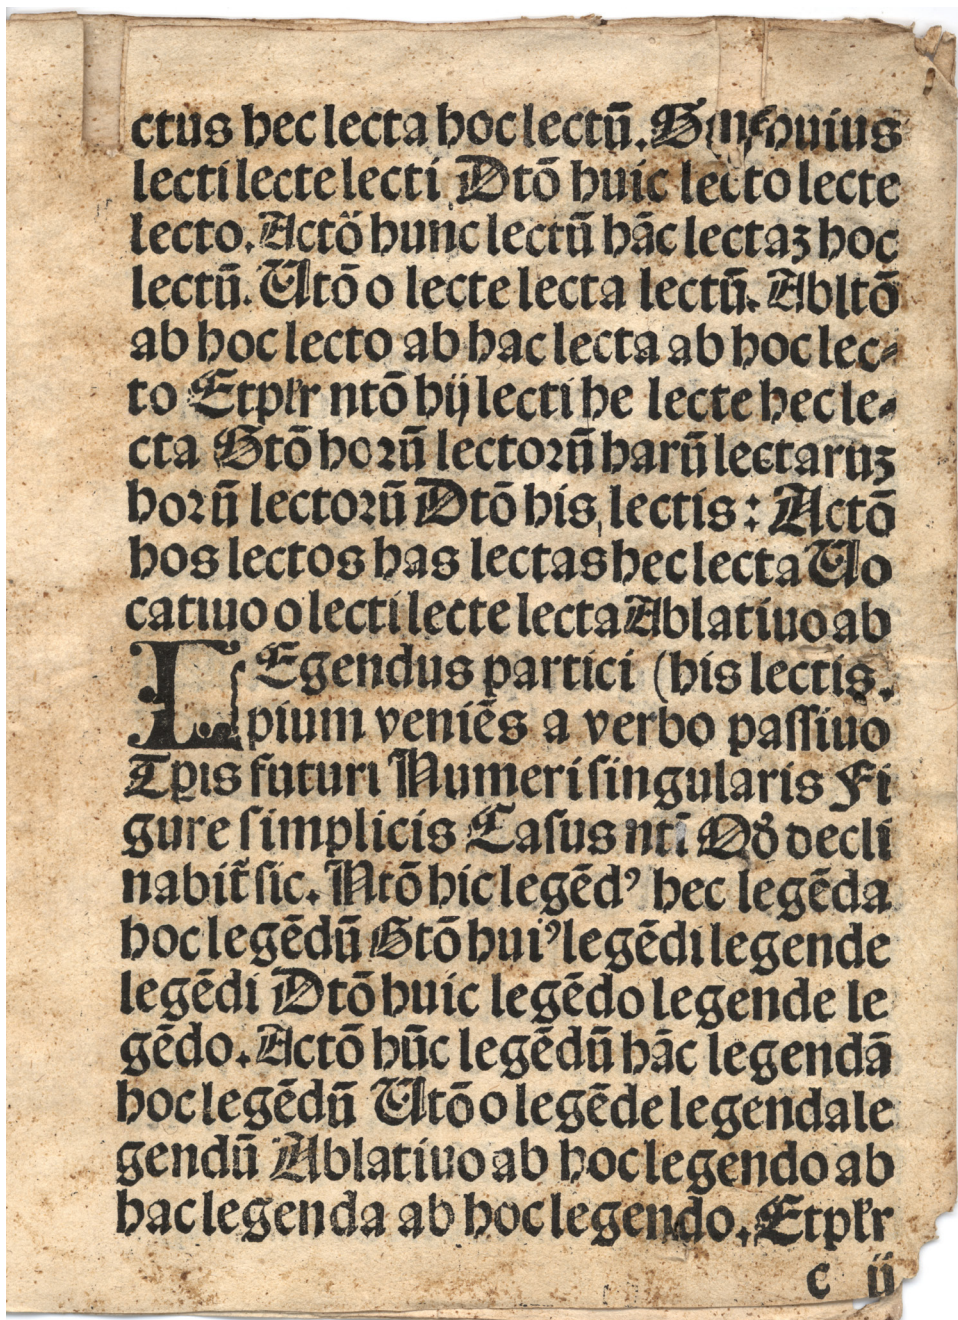 ctus hec lecta hoc lectū. huius
lecti lecte lecti Dtō huic lecto lecte
lecto. Actō hunc lectū hāc lectaꝫ hoc
lectū. Utō o lecte lecta lectū. Abltō
ab hoc lecto ab hac lecta ab hoc lec⸗
to Etplr ntō hij lecti he lecte hec le⸗
cta Gtō hoꝛū lectoꝛū harū lectaruꝫ
hoꝛū lectoꝛū Dtō his lectis : Actō
hos lectos has lectas hec lecta Uo
catiuo o lecti lecte lecta Ablatiuo ab
LEgendus partici (his lectis.
pium veniēs a verbo paſſiuo
Tꝑis futuri Numeri ſingularis Fi
gure ſimplicis Caſus nti Qd̓ decli
nabit̄ ſic. Ntō hic legēdꝰ hec legēda
hoc legēdū Gtō huiꝰ legēdi legende
legēdi Dtō huic legēdo legende le
gēdo. Actō hūc legēdū hāc legendā
hoc legēdū Utō o legēde legenda le
gendū Ablatiuo ab hoc legendo ab
hac legenda ab hoc legendo. Etplr
c ij